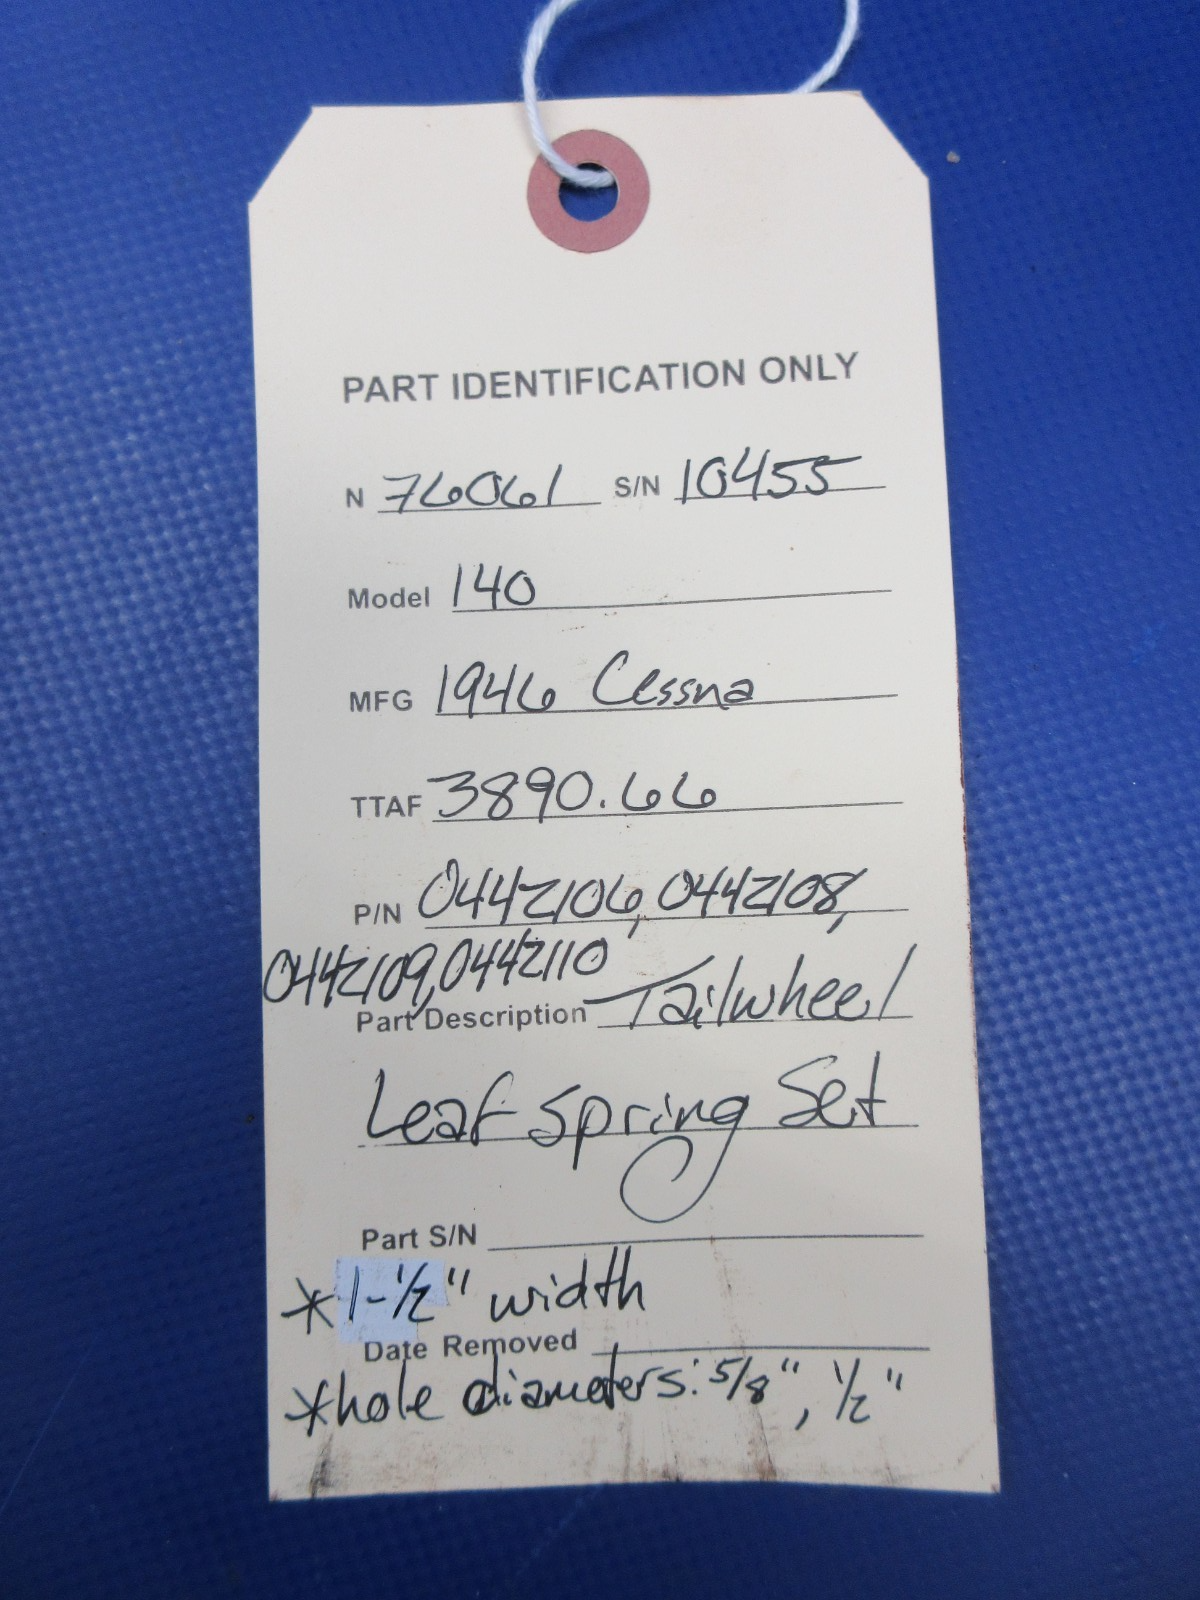 PART IDENTIFICATION ONLY
N 76061 S/N 10455
Model 140
MFG 1946 Cessna
TTAF 3890.66
P/N 0442106, 0442108,
0442109, 0442110
Part Description Tailwheel
Leaf Spring Set
Part S/N
* 1-1/2" width
Date Removed
* hole diameters: 5/8", 1/2"